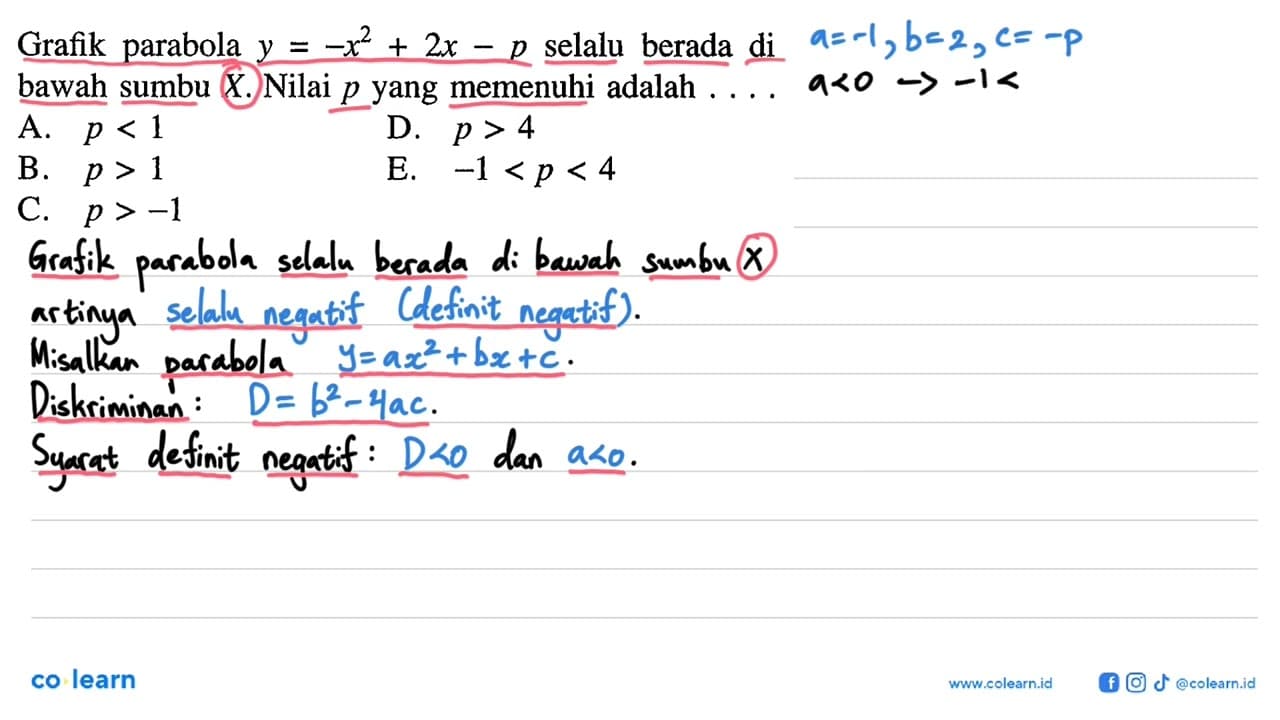 Grafik parabola y = -x² + 2x - p selalu berada di
bawah sumbu X. Nilai p yang memenuhi adalah . . . .
A. p < 1
B. p > 1
C. p > -1
D. p > 4
E. -1 < p < 4
a=-1, b=2, c=-p
a<0 → -1<
Grafik parabola selalu berada di bawah sumbu X
artinya selalu negatif (definit negatif).
Misalkan parabola y=ax²+bx+c.
Diskriminan: D=b²-4ac.
Syarat definit negatif: D<0 dan a<0.
co learn
www.colearn.id
@colearn.id